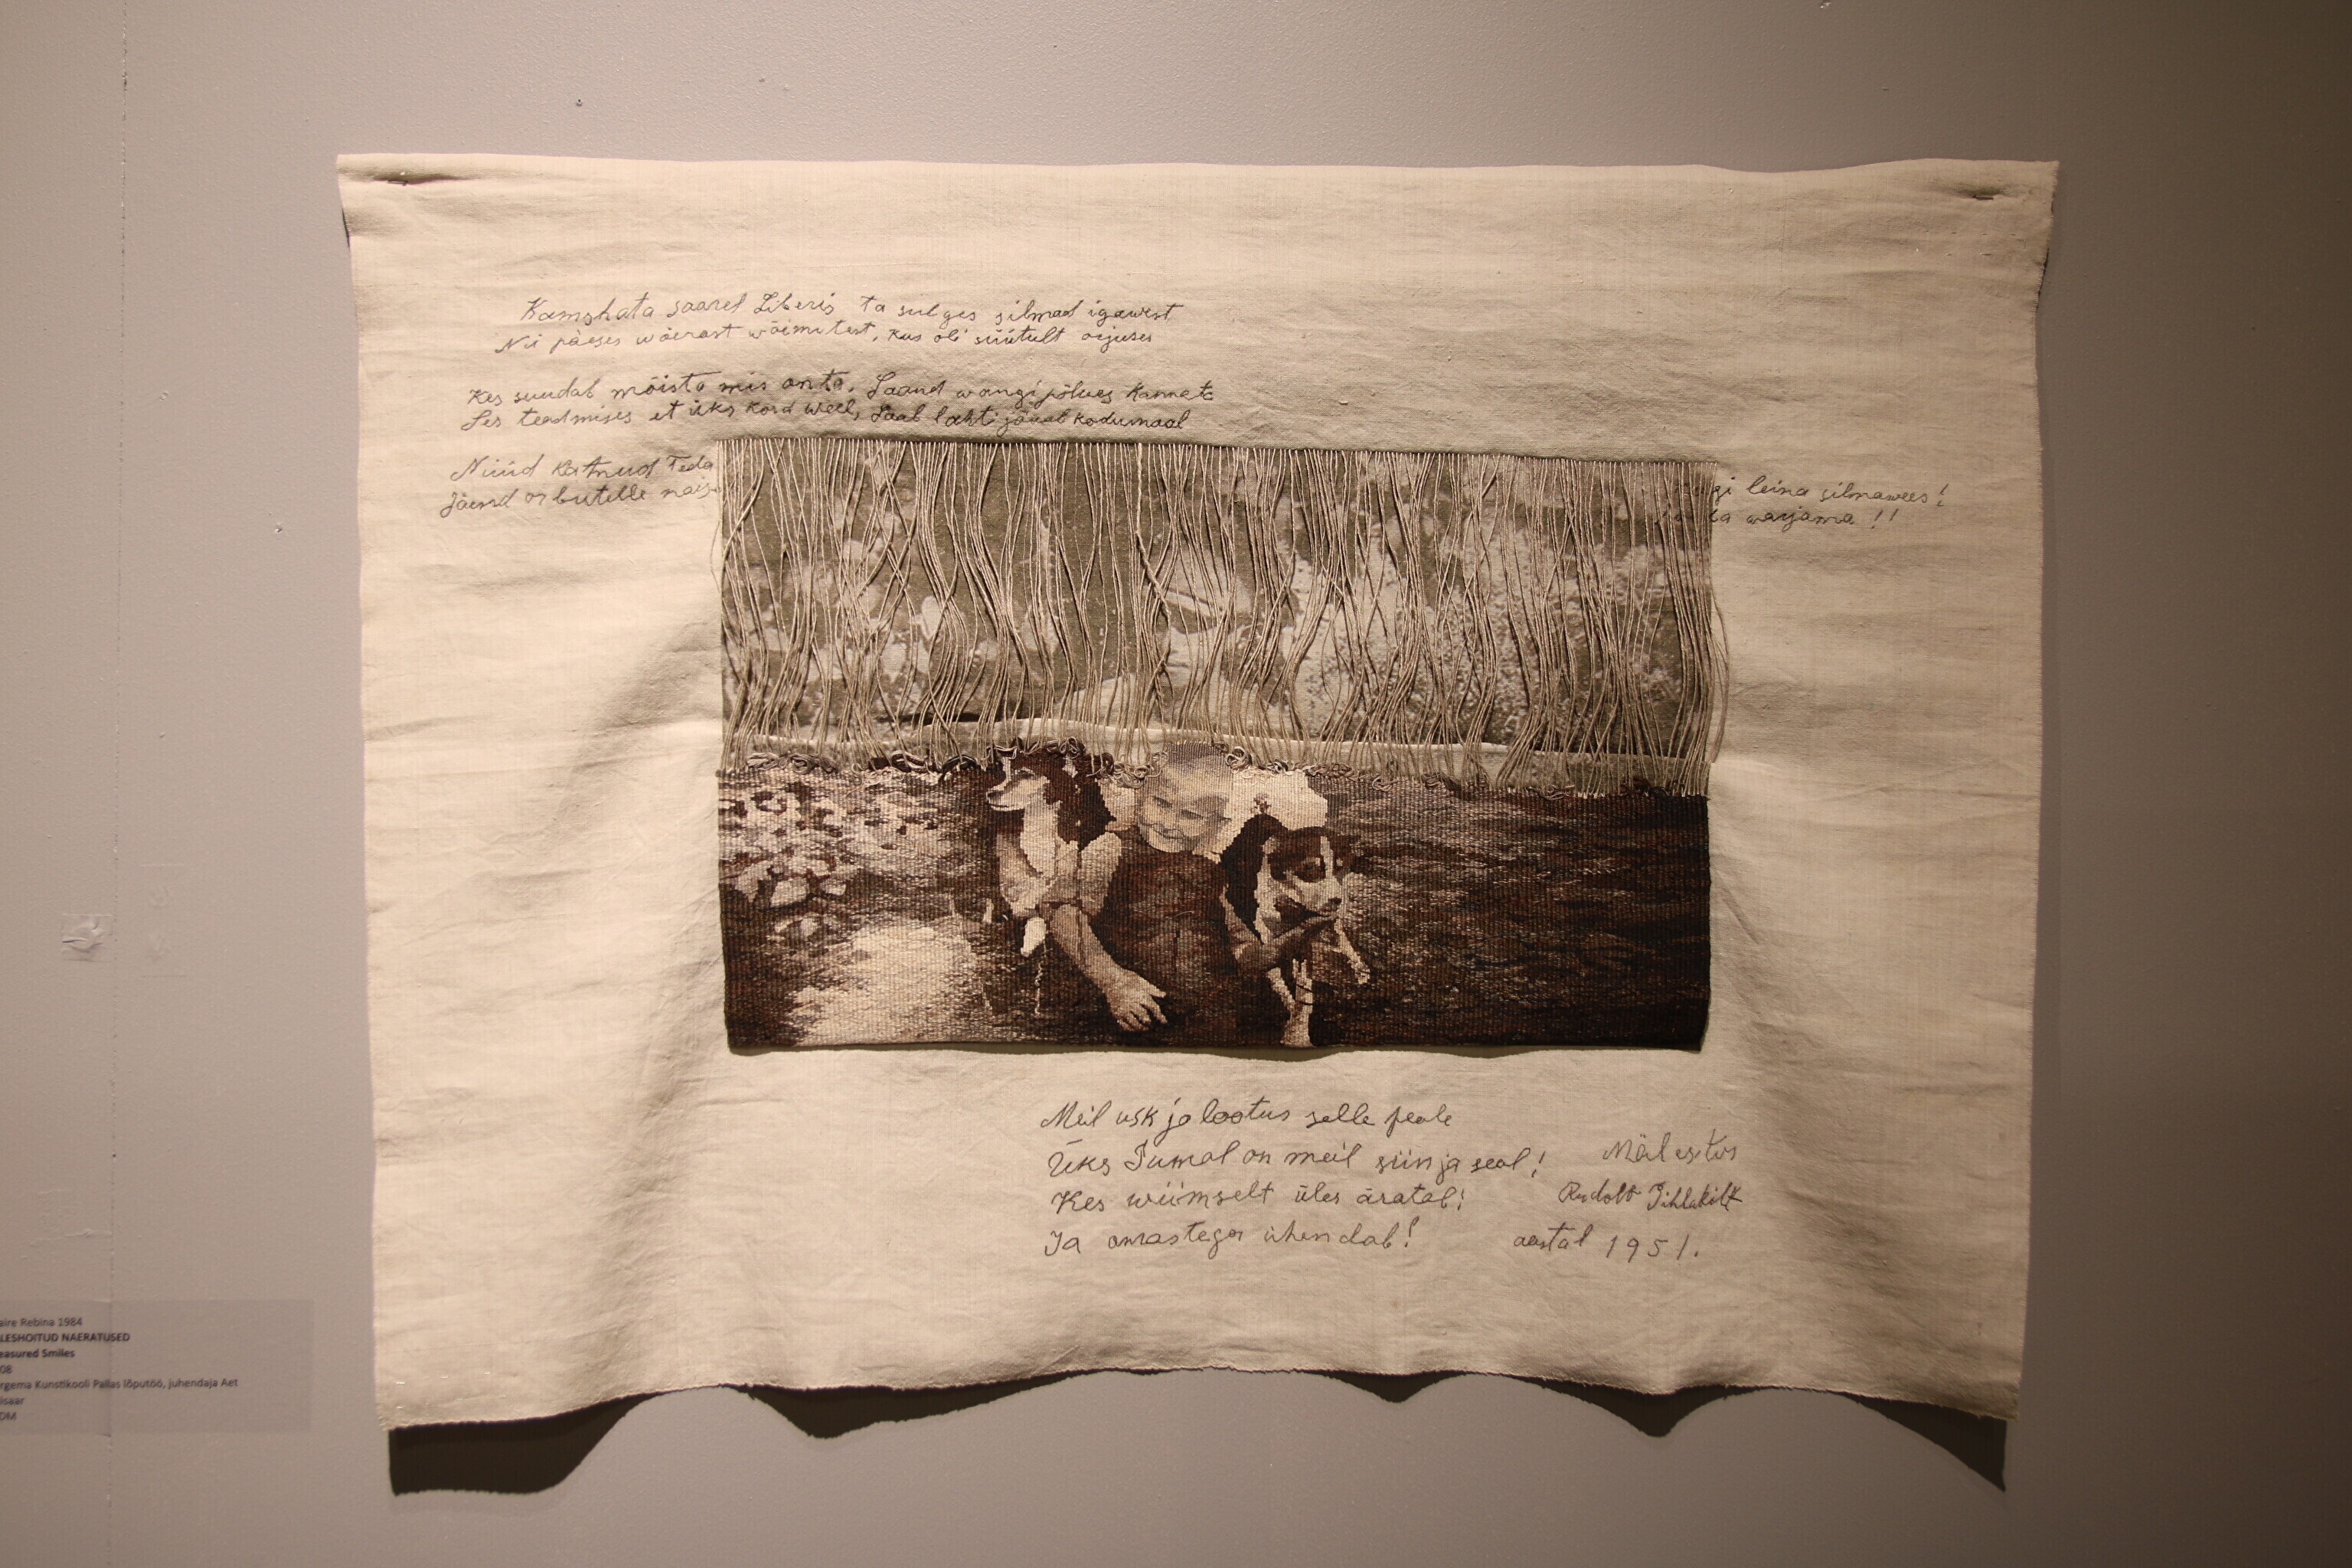 Kamshata saarel Siberis ta sulges silmad igawest
Nii pääses wõerast wõimu test, kus oli süütult orjuses
Kes suudab mõista mis on ta, Saand wangipõlwes kannata
Ses teadmises et üks kord weel, Saab lahti jääab kodumaal
Nüüd katnud Teda
Jäend orbutelle nais
gi leina silmawees!
ta warjama !!
Meil usk ja lootus selle peale
Üks Jumal on meil siin ja seal!
Kes wiimselt üles äratab!
Ja omastega ühendab!
Mälestus
Rudolf Pihlakilt
aastal 1951.
aire Rebina 1984
LESHOITUD NAERATUSED
easured Smiles
08
rgema Kunstikooli Pallas lõputöö, juhendaja Aet
lisaar
DM